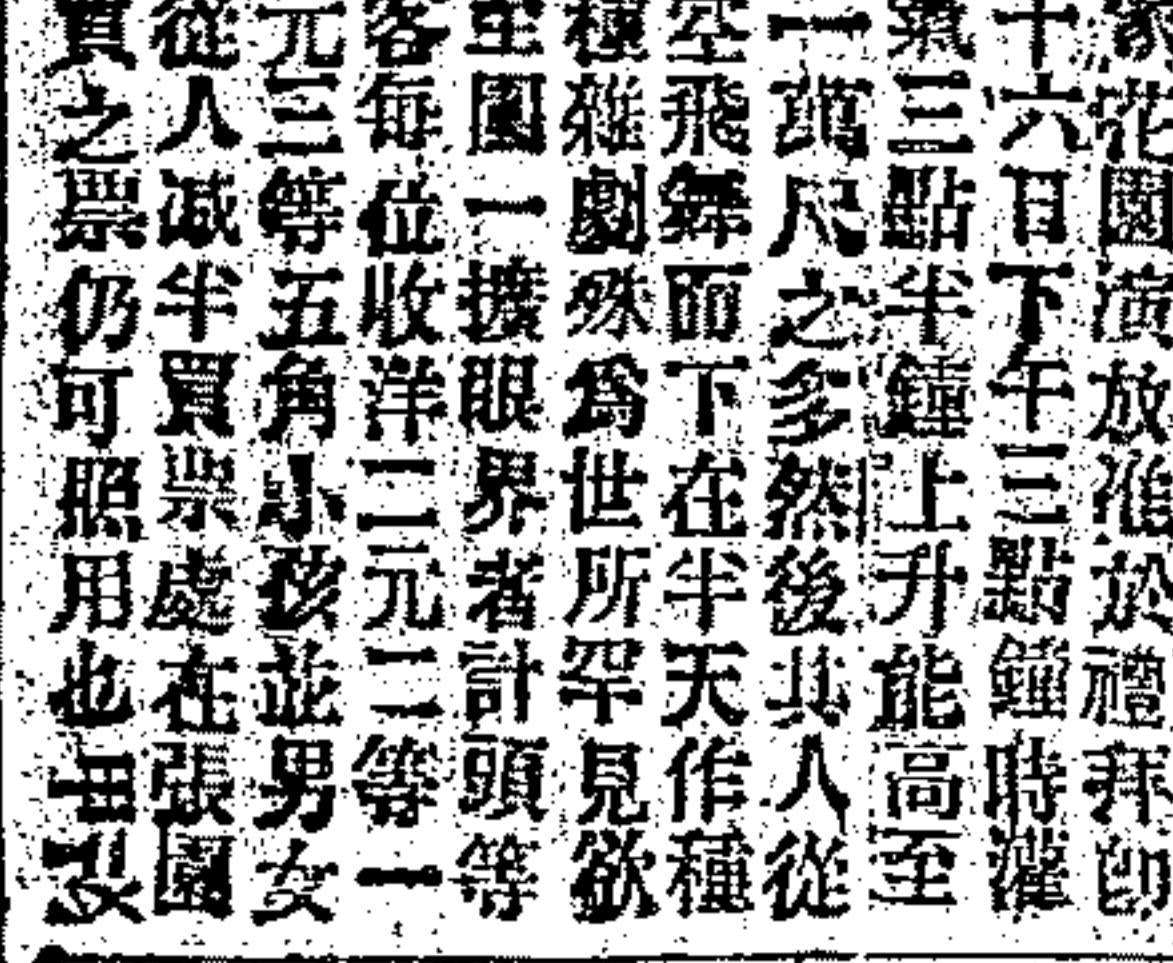 家花園演放准於禮拜卽
十六日下午三點鐘時灌
氣三點半鐘上升能高至
一萬尺之多然後其人從
空飛舞而下在半天作種
種雜劇殊爲世所罕見欲
至園一擴眼界者計頭等
客每位收洋二元二等一
元三等五角小孩並男女
從人减半買票處在張園
買之票仍可照用也